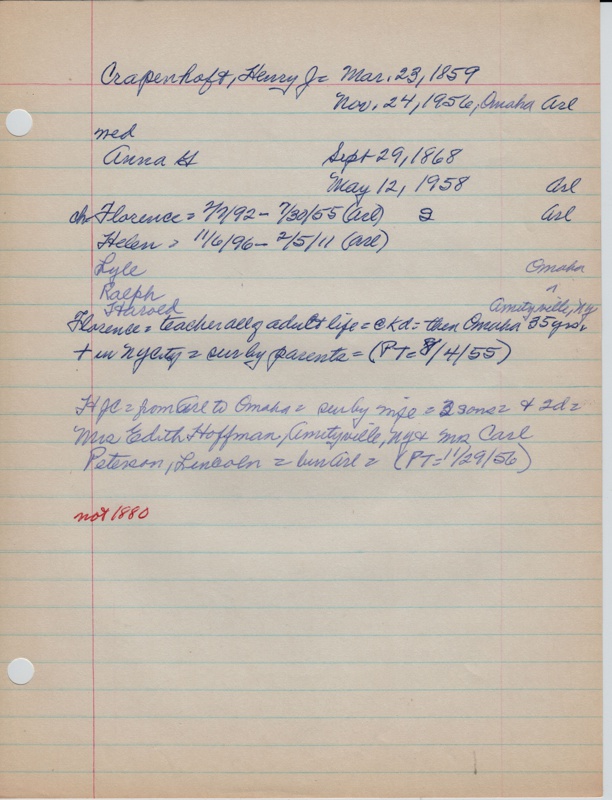 Crapenhoft, Henry J = Mar. 23, 1859
Nov. 24, 1956, Omaha Arl
wed
Anna G Sept 29, 1868
May 12, 1958 Arl
ch Florence = 2/7/92 - 7/30/55 (Arl) 2 Arl
Helen = 11/6/96 - 2/5/11 (Arl)
Lyle Omaha
Ralph ^
Harold Amityville, NY
Florence = teacher all of adult life = c k d = then Omaha 35 yrs.
+ in NYCity = sur by parents = (PT = 8/4/55)
HJC = from Arl to Omaha = sur by wife = 3 sons = + 2d =
Mrs Edith Hoffman, Amityville, NY + Mrs Carl
Peterson, Lincoln = bur Arl = (PT = 11/29/56)
not 1880